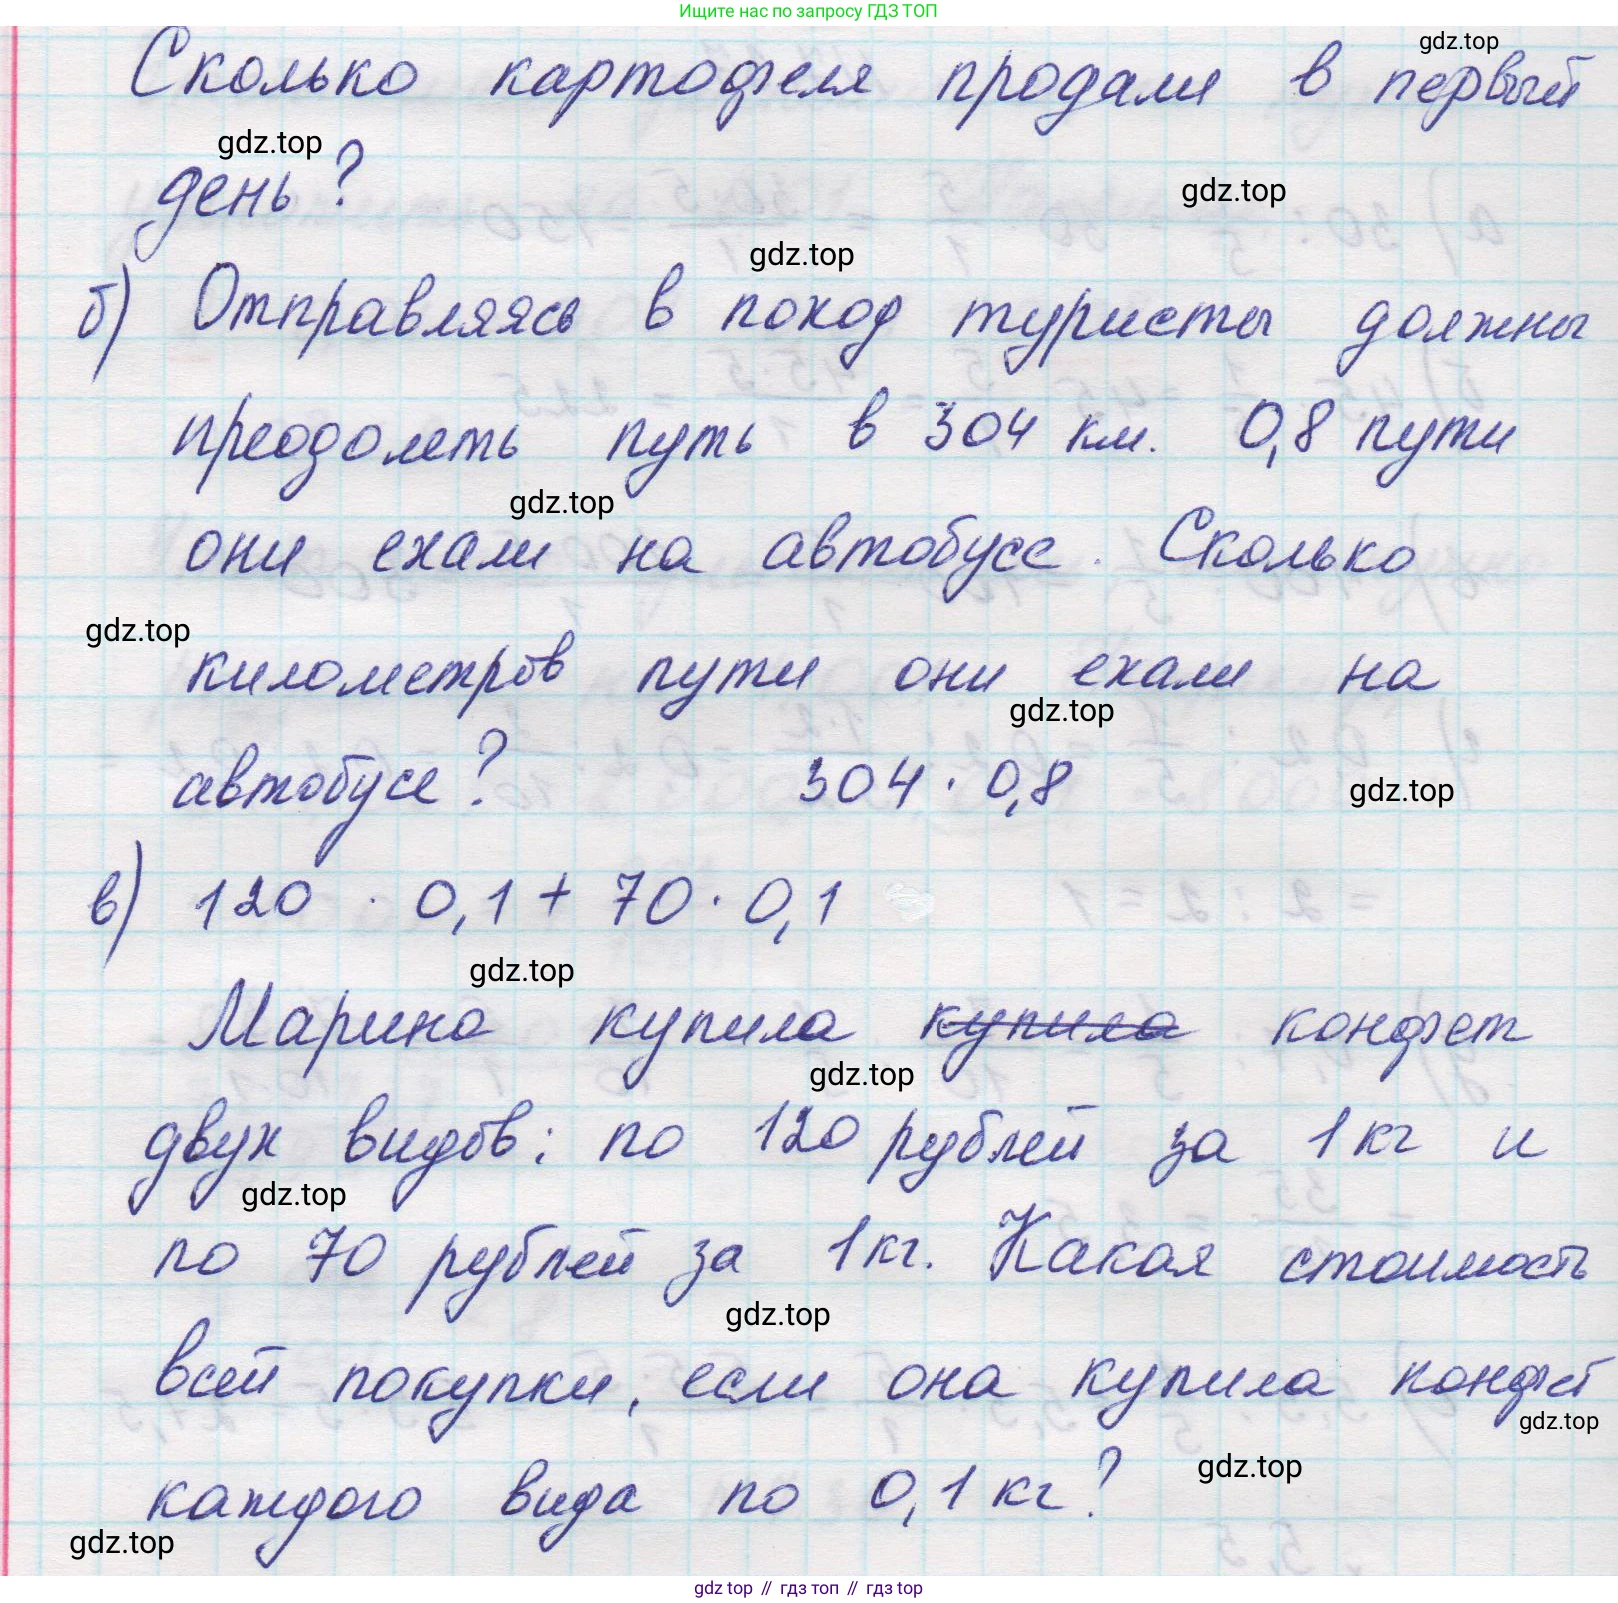 Ищите нас по запросу ГДЗ ТОП
gdz.top
Сколько картофеля продали в первый
gdz.top
день?
gdz.top
gdz.top
б) Отправляясь в поход туристы должны
преодолеть путь в 304 км. 0,8 пути
gdz.top
они ехали на автобусе. Сколько
gdz.top
километров пути они ехали на
gdz.top
автобусе? 304 · 0,8
gdz.top
в) 120 · 0,1 + 70 · 0,1
gdz.top
Марина купила купила конфет
gdz.top
двух видов: по 120 рублей за 1 кг и
gdz.top
по 70 рублей за 1 кг. Какая стоимость
gdz.top
всей покупки, если она купила конфет
gdz.top
gdz.top
каждого вида по 0,1 кг?
gdz.top
gdz top // гдз топ // гдз top